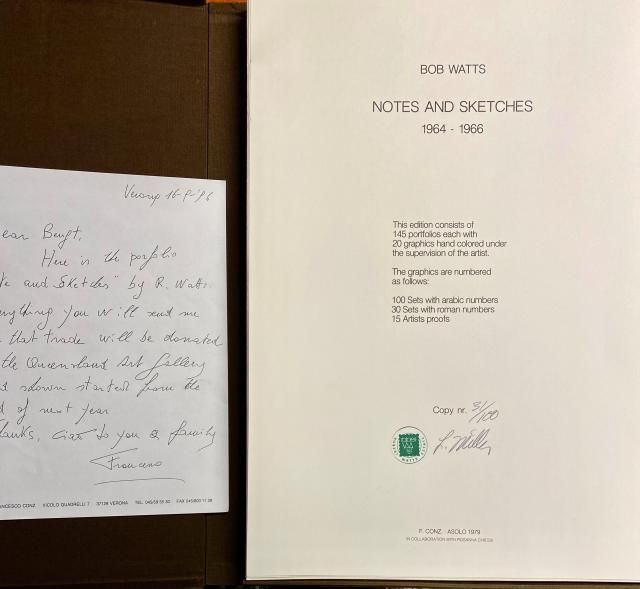 Verona 16-9-'96
ear Bengt,
Here is the porfolio
e and Sketches" by R. Watts.
ything you will send me
that trade will be donated
the Queensland Art Gallery
shown started from the
d of next year
anks, ciao to you & family
Francesco
NCESCO CONZ VICOLO QUADRELLI 7 37129 VERONA TEL. 045/59 FAX 045/800 11 39
BOB WATTS
NOTES AND SKETCHES
1964 - 1966
This edition consists of
145 portfolios each with
20 graphics hand colored under
the supervision of the artist.
The graphics are numbered
as follows:
100 Sets with arabic numbers
30 Sets with roman numbers
15 Artists proofs
Copy nr. 31/100
WATTS
F. CONZ - ASOLO 1979
IN COLLABORATION WITH ROSANNA CHIESSI